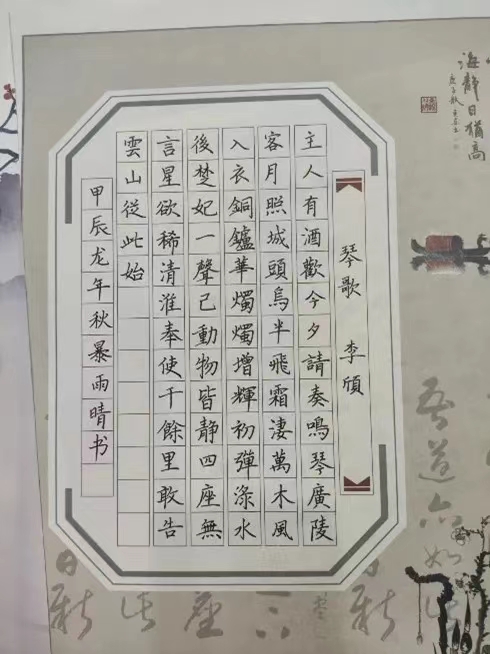 琴歌 李頎
主人有酒歡今夕請奏鳴琴廣陵
客月照城頭烏半飛霜淒萬木風
入衣銅鑪華燭燭增輝初彈淥水
後楚妃一聲已動物皆靜四座無
言星欲稀清淮奉使千餘里敢告
雲山從此始
甲辰龙年秋暴雨晴书
海静日猶高
吾道亦如
日新
座
日新